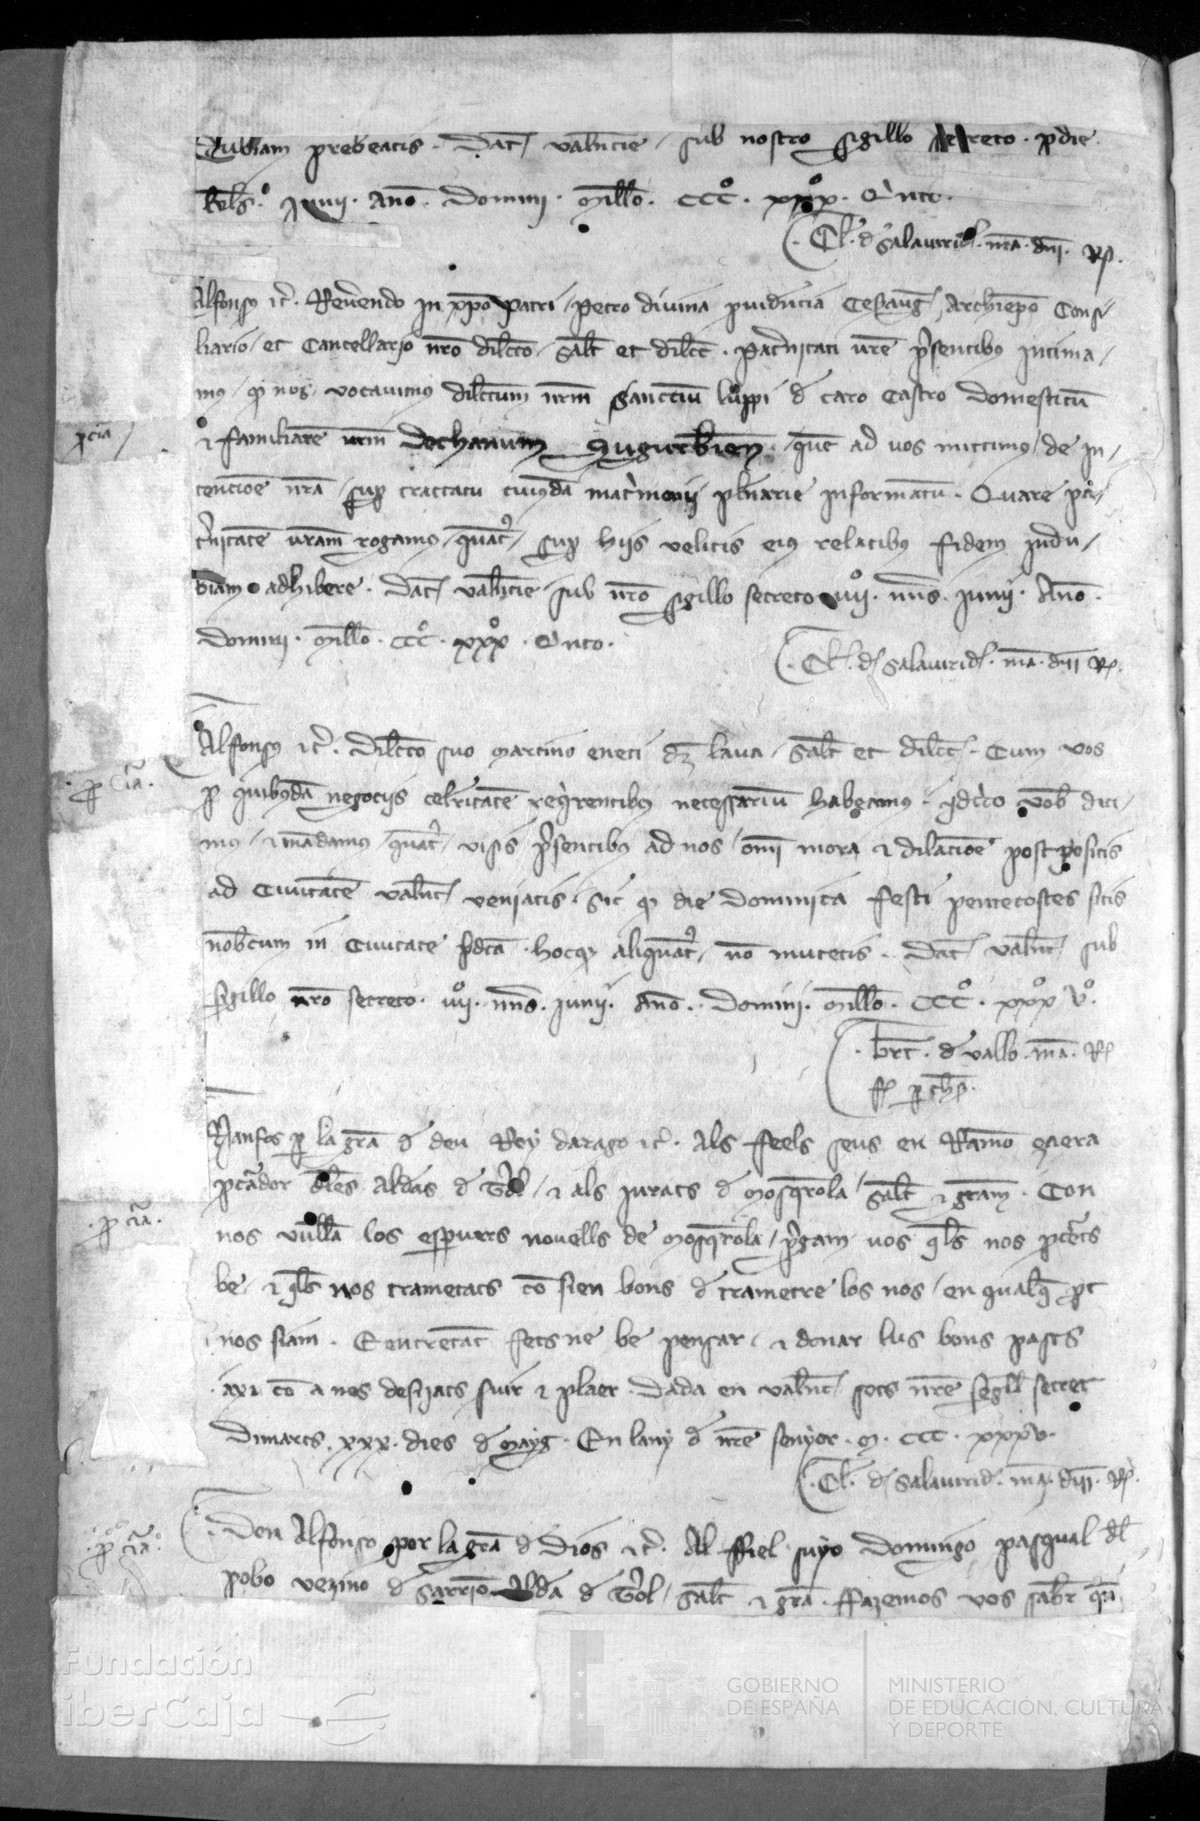 dubiam prebeatis. Dat Valncie sub nostro sigillo secreto. pdie
Kls. Junii. Ano. Domini. Millo. CCC. xxx. Qnto.
Cl. d Salavirid. ma. dni. R.
Alfonsus ic. Reverendo in xpo patri Petro divina pvidencia Cesaraug Archiepo Consi
liario et Cancellario nro dilcto salt et dilcc. Paternitati vre psentibus intima
mus q nos vocavimus dilctum nrm Sanccium luppi d caro Castro domesticu
pcia
i familiare nrm dechanum Sugurbien. quem ad vos mittimus de in
tencioe nra sup tractatu cuiusda matrimonii plenarie informatu. Quare pa
trnitate vram rogamus quat sup hiis velitis eius relatibus fidem indu
biam adhibere. Dat Valncie sub nro sigillo secreto. iiii. nns. Junii. Ano.
Domini. Millo. CCC. xxx. Qnto.
Cl. d Salavirid. ma. dni R.
Alfonsus ic. Dilcto suo Martino eneti de lava salt et dilcc. Cum vos
p cia.
p quibusda negociis celritate reqrentibus necessariu habeamus. idcirco vob dici
mus i mandamus quat visis psentibus ad nos omi mora i dilacioe postpositis
ad Civitate Valnc veniatis. sic q die dominica festi pentecostes sitis
nobcum in Civitate pdca. hocq aliquat no mutetis. Dat Valnc sub
sigillo nro secreto. iiii. nns. Junii. Ano. Domini. Millo. CCC. xxx v.
brt. d vallo. ma. R
Nanfos p la gra d deu Rey darago ic. Als feels seus en Ramo
pcador dles aldeas d Terol i als jurats d Mosqrola salt i gram. Con
p cia.
nos vulla los esparvers novells de Mosqrola pgam vos qls nos
be i qls nos trametats co sien bons d trametre los nos en qualq pt
nos siam. E entretat fets ne be pensar i donar lus bons pasts
axi co a nos desijats svir i plaer. Dada en Valnc sots nre segll secret
Dimarts. xxx. dies d mayg. En lany d nre senyor. M. CCC. xxxv.
Cl. d Salavirid. ma. dni. R.
Don Alfonso por la gra d Dios ic. Al fiel suyo Domingo pasqual dl
p cia.
pobo vezino d Sarrion alda d Terol salt i gra. Ffazemos vos saber q
Fundación
iberCaja
GOBIERNO
DE ESPAÑA
MINISTERIO
DE EDUCACIÓN, CULTURA
Y DEPORTE